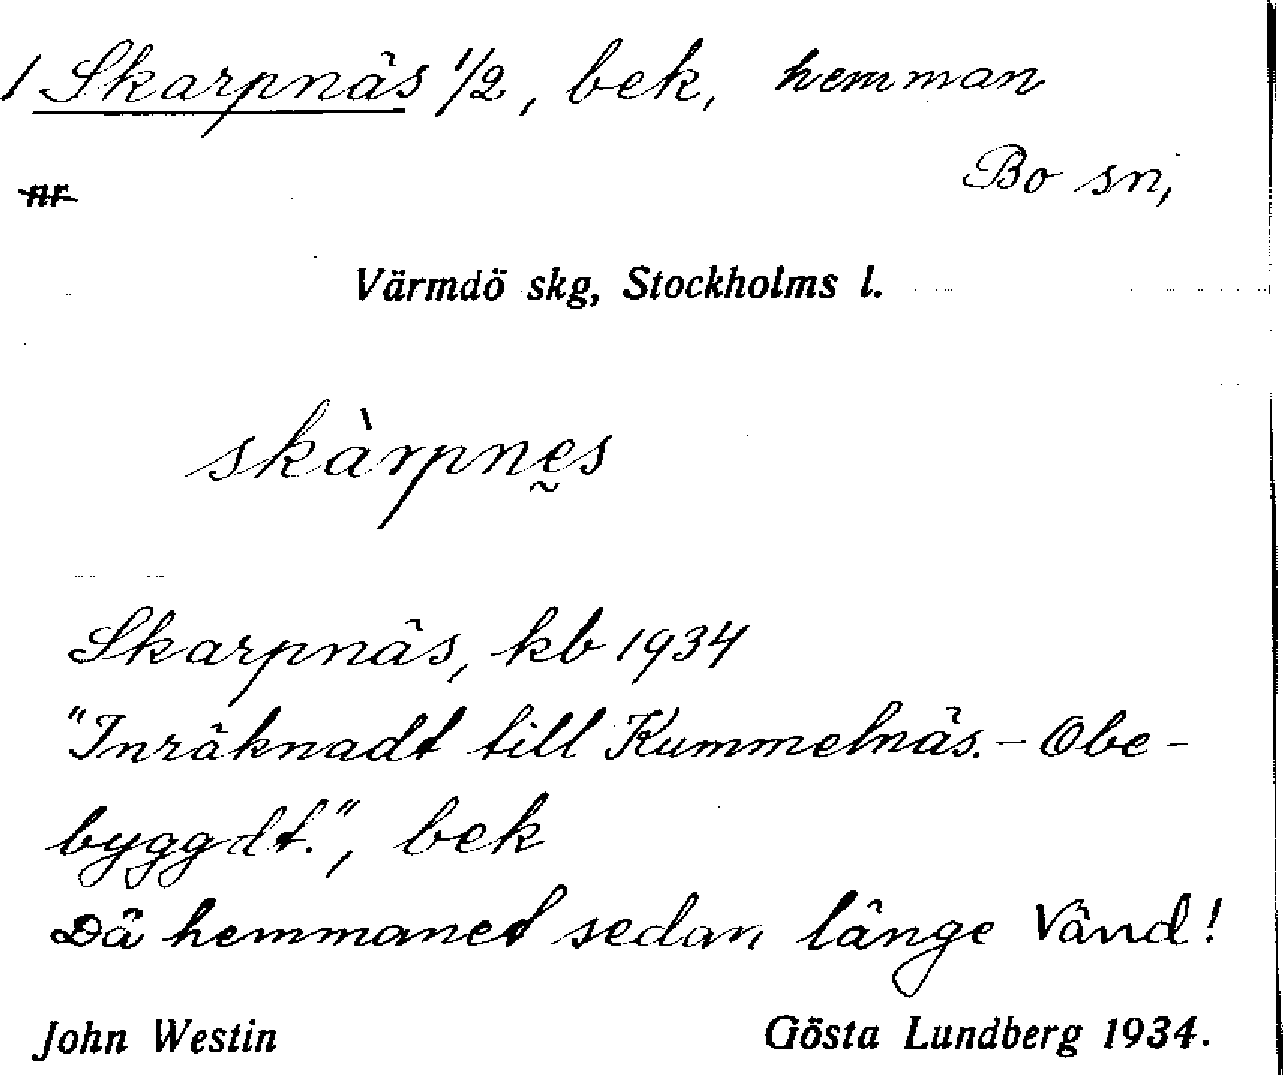 / Skarpnäs 1/2, bek, hemman
Bo sn,
nr
Värmdö skg, Stockholms l.
skàrpnes
Skarpnäs, kb 1934
"Inräknadt till Kummelnäs. - Obe-
byggdt.", bek
Då hemmanet sedan länge Vänd!
John Westin
Gösta Lundberg 1934.